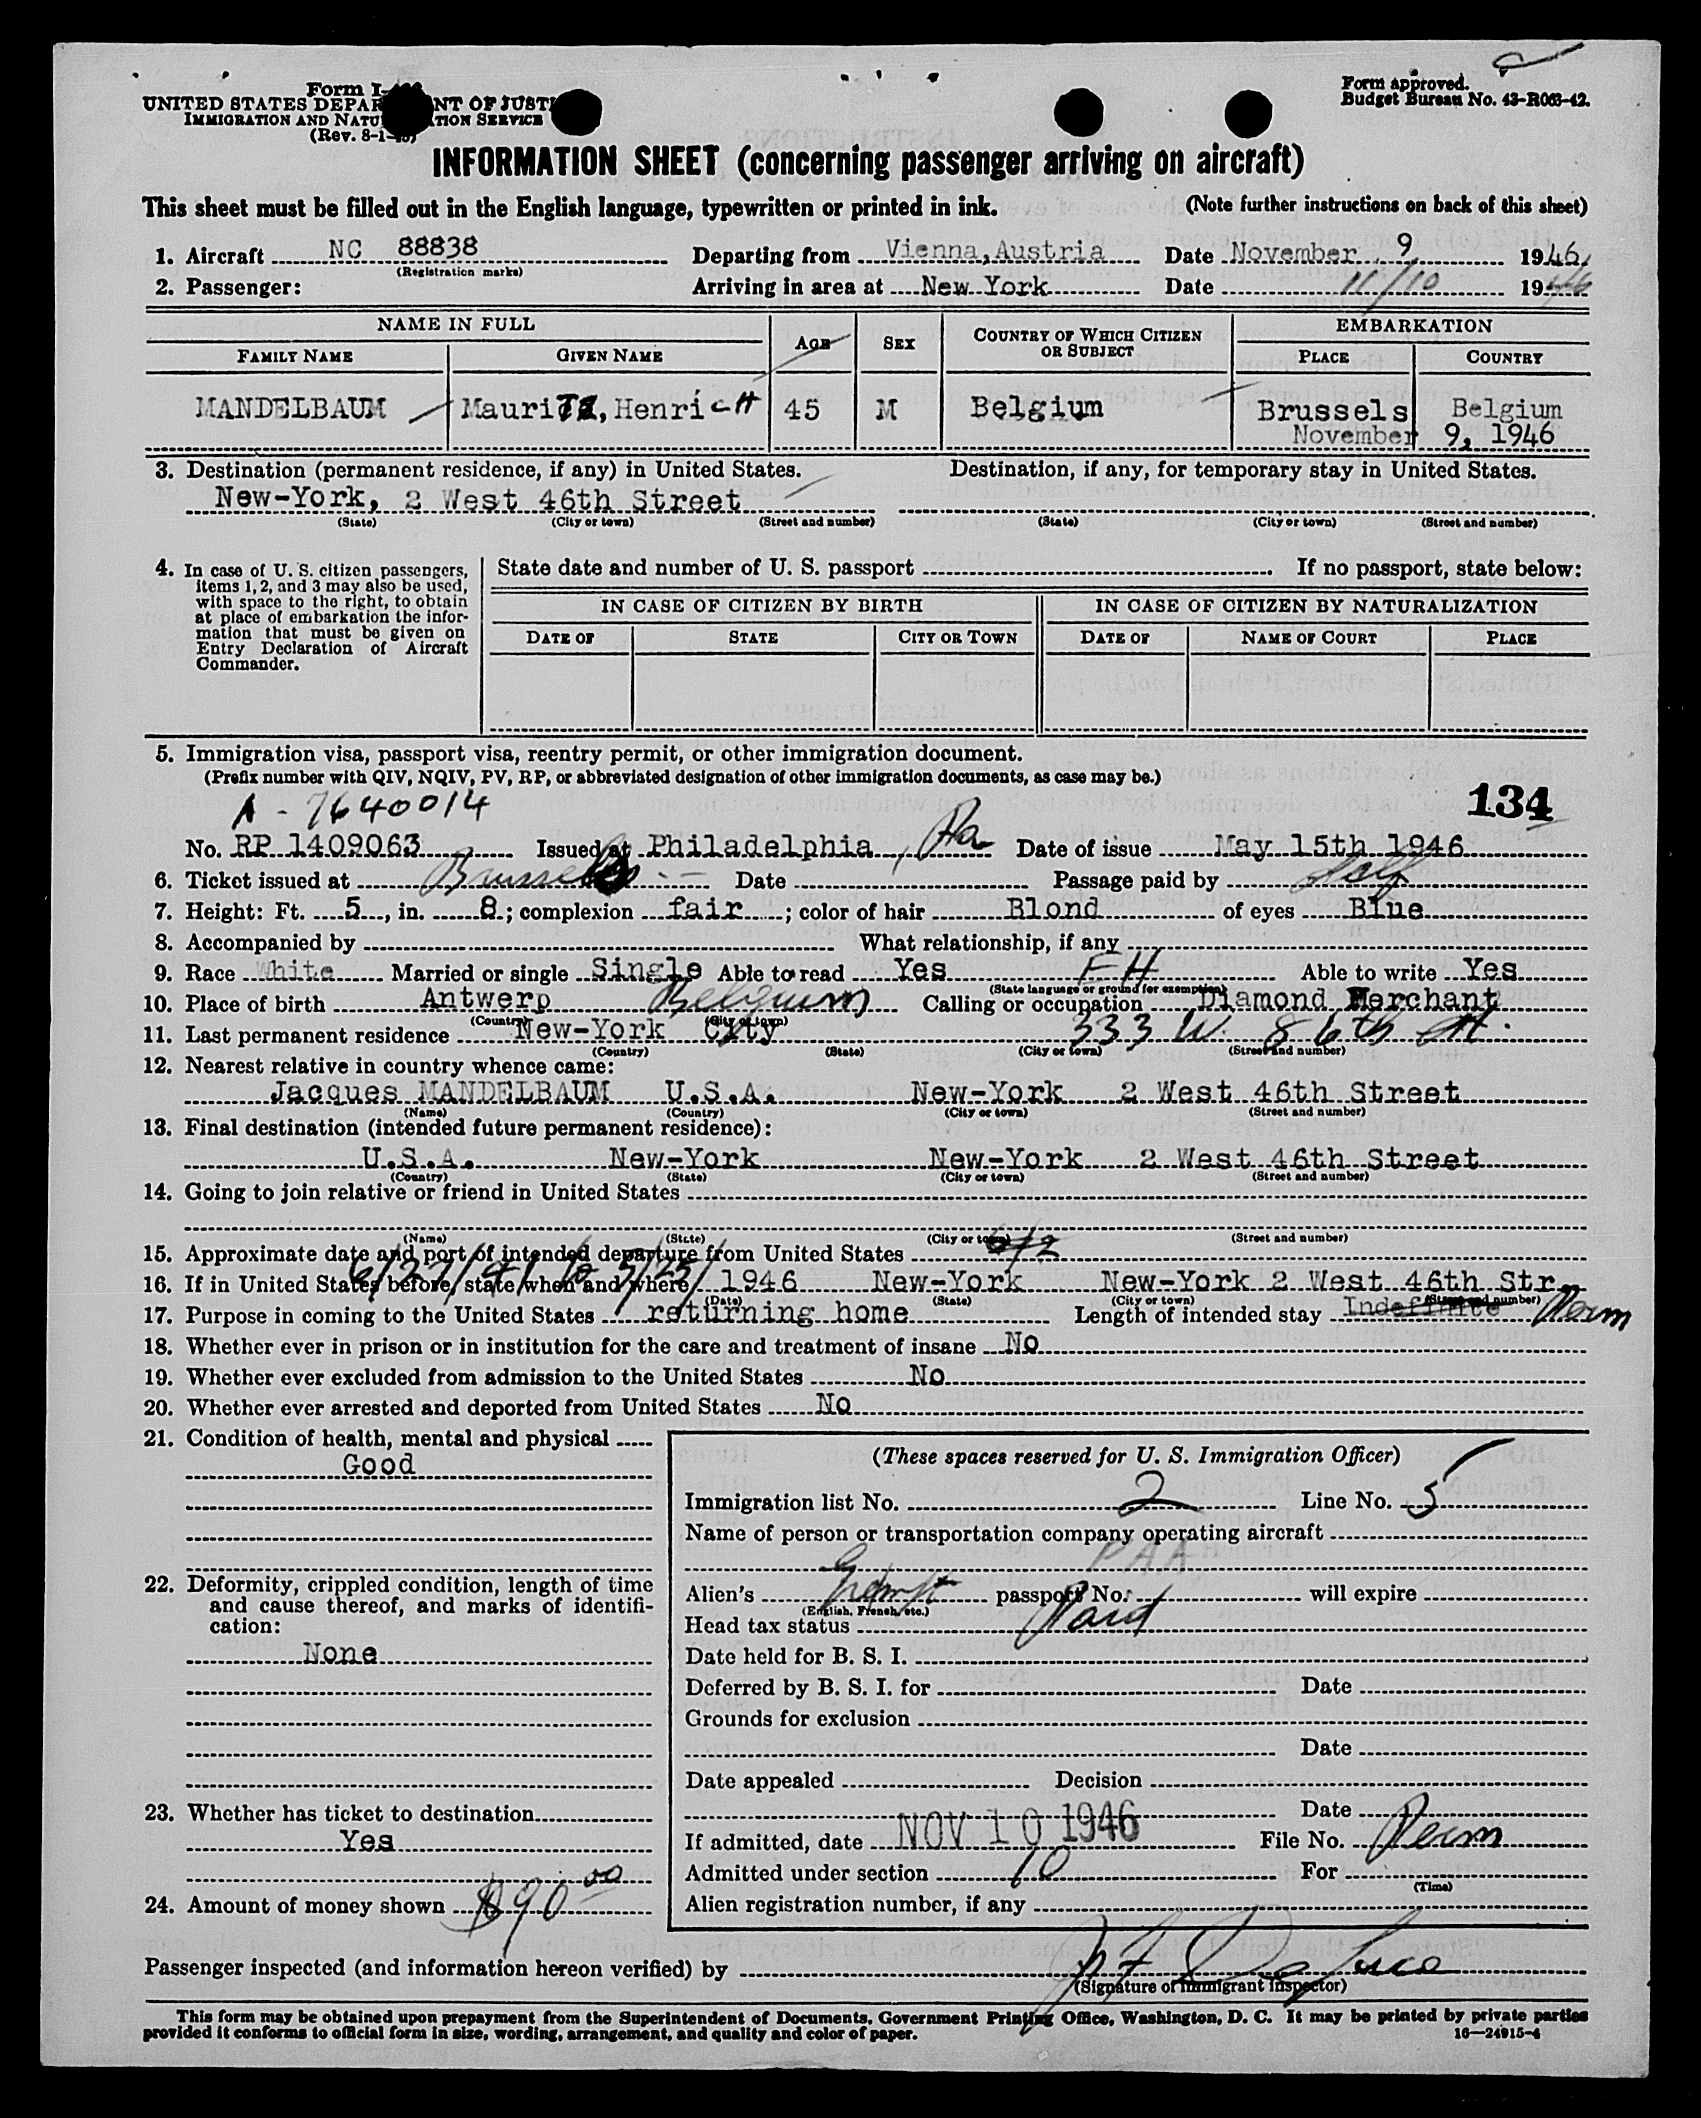 Form I-
UNITED STATES DEPAR NT OF JUSTI
IMMIGRATION AND NATU TION SERVICE
(Rev. 8-1-
Form approved.
Budget Bureau No. 43-R063-42.
INFORMATION SHEET (concerning passenger arriving on aircraft)
This sheet must be filled out in the English language, typewritten or printed in ink. (Note further instructions on back of this sheet)
1. Aircraft NC 88838 Departing from Vienna, Austria Date November 9, 1946.
(Registration marks)
2. Passenger: Arriving in area at New York Date 11/10 1946
NAME IN FULL AGE SEX COUNTRY OF WHICH CITIZEN OR SUBJECT EMBARKATION
FAMILY NAME GIVEN NAME PLACE COUNTRY
MANDELBAUM Mauritz, HenricH 45 M Belgium Brussels Belgium
November 9, 1946
3. Destination (permanent residence, if any) in United States. Destination, if any, for temporary stay in United States.
New-York, 2 West 46th Street
(State) (City or town) (Street and number) (State) (City or town) (Street and number)
4. In case of U. S. citizen passengers, items 1, 2, and 3 may also be used, with space to the right, to obtain at place of embarkation the information that must be given on Entry Declaration of Aircraft Commander.
State date and number of U. S. passport If no passport, state below:
IN CASE OF CITIZEN BY BIRTH IN CASE OF CITIZEN BY NATURALIZATION
DATE OF STATE CITY OR TOWN DATE OF NAME OF COURT PLACE
5. Immigration visa, passport visa, reentry permit, or other immigration document.
(Prefix number with QIV, NQIV, PV, RP, or abbreviated designation of other immigration documents, as case may be.)
A - 7640014 134
No. RP 1409063 Issued at Philadelphia, Pa Date of issue May 15th 1946
6. Ticket issued at Brussels Date Passage paid by Self
7. Height: Ft. 5, in. 8; complexion fair; color of hair Blond of eyes Blue
8. Accompanied by What relationship, if any
9. Race White Married or single Single Able to read Yes Able to write Yes
(State language or ground for exemption)
10. Place of birth Antwerp Belgium Calling or occupation Diamond Merchant
(Country) (City or town)
11. Last permanent residence New-York City 333 W. 86th St.
(Country) (State) (City or town) (Street and number)
12. Nearest relative in country whence came:
Jacques MANDELBAUM U.S.A. New-York 2 West 46th Street
(Name) (Country) (City or town) (Street and number)
13. Final destination (intended future permanent residence):
U.S.A. New-York New-York 2 West 46th Street
(Country) (State) (City or town) (Street and number)
14. Going to join relative or friend in United States
(Name) (State) (City or town) (Street and number)
15. Approximate date and port of intended departure from United States
16. If in United States before, state when and where 6/27/41 to 5/25/ 1946 New-York New-York 2 West 46th Str.
(Date) (State) (City or town) (Street and number)
17. Purpose in coming to the United States returning home Length of intended stay Indefinite Perm
18. Whether ever in prison or in institution for the care and treatment of insane No
19. Whether ever excluded from admission to the United States No
20. Whether ever arrested and deported from United States No
21. Condition of health, mental and physical
Good
22. Deformity, crippled condition, length of time and cause thereof, and marks of identification:
None
23. Whether has ticket to destination
Yes
24. Amount of money shown $90.00
(These spaces reserved for U. S. Immigration Officer)
Immigration list No. 2 Line No. 5
Name of person or transportation company operating aircraft
PAA
Alien's passport No. will expire
(English, French, etc.)
Head tax status Paid
Date held for B. S. I.
Deferred by B. S. I. for Date
Grounds for exclusion
Date
Date appealed Decision
Date
If admitted, date NOV 10 1946 File No. Perm
Admitted under section 10 For
(Time)
Alien registration number, if any
Passenger inspected (and information hereon verified) by
(Signature of Immigrant Inspector)
This form may be obtained upon prepayment from the Superintendent of Documents, Government Printing Office, Washington, D. C. It may be printed by private parties
provided it conforms to official form in size, wording, arrangement, and quality and color of paper. 16—24915-4